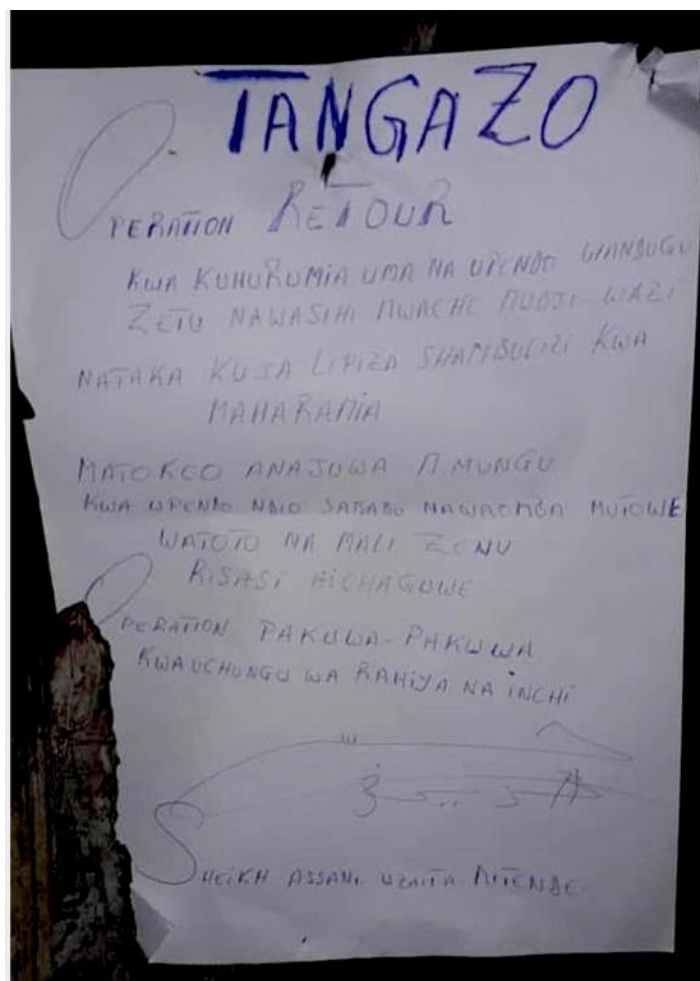 TANGAZO
OPERATION RETOUR
KWA KUHURUMIA UMA NA UPENDO WANDUGU
ZETU NAWASIHI MWACHE MUDJI-WAZI
NATAKA KUJA LIPIZA SHAMBULIZI KWA
MAHARAMIA
MATOKEO ANAJUWA M.MUNGU
KWA UPENDO NDIO SABABU NAWAOMBA MUTOWE
WATOTO NA MALI ZENU
RISASI AICHAGUWE
OPERATION PAKUWA-PAKUWA
KWAUCHUNGU WA RAHIYA NA INCHI
SHEIKH ASSANI